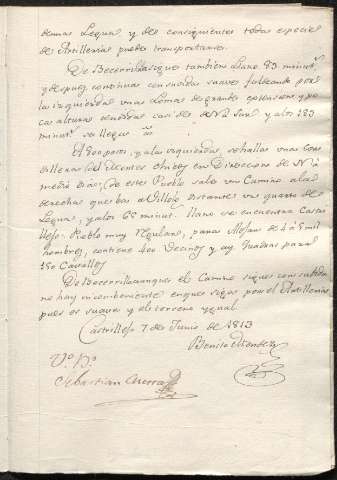 demas Legua, y de consiguientes todas especies
de Artillerias puedes transportarse.
De Becerril sigue tambien Llano 83 minut.s
y despues continua con subidas suaves faldeando por
la izquierda unas Lomas de grande extension y por
cas alturas tendidas casi de N. a Sur, y a los 183
minut.s se llega a
A 800 pasos, y a la izquierda, se hallas unas Cor
dilleras del Montes en Direccion de N. a
medio dia, de este Pueblo sale un Camino a la
derecha que bas a Villol distantes un quarto de
Legua, y a los 60 minut. llano se encuentra Castri
llejo. Pueblo muy Regular, para Alojar de 4 a 5 mil
hombres, contiene 400 Vecinos y ay quadras para
150 Cavallos
De Becerril aunque el Camino sigue con subidas
no hay inconbeniente en que sigas por el Artilleria,
pues es suave y el terreno ygual.
Castrillejo 7 de Junio de 1813
Benito Mendez
V.o B.o
Sebastian